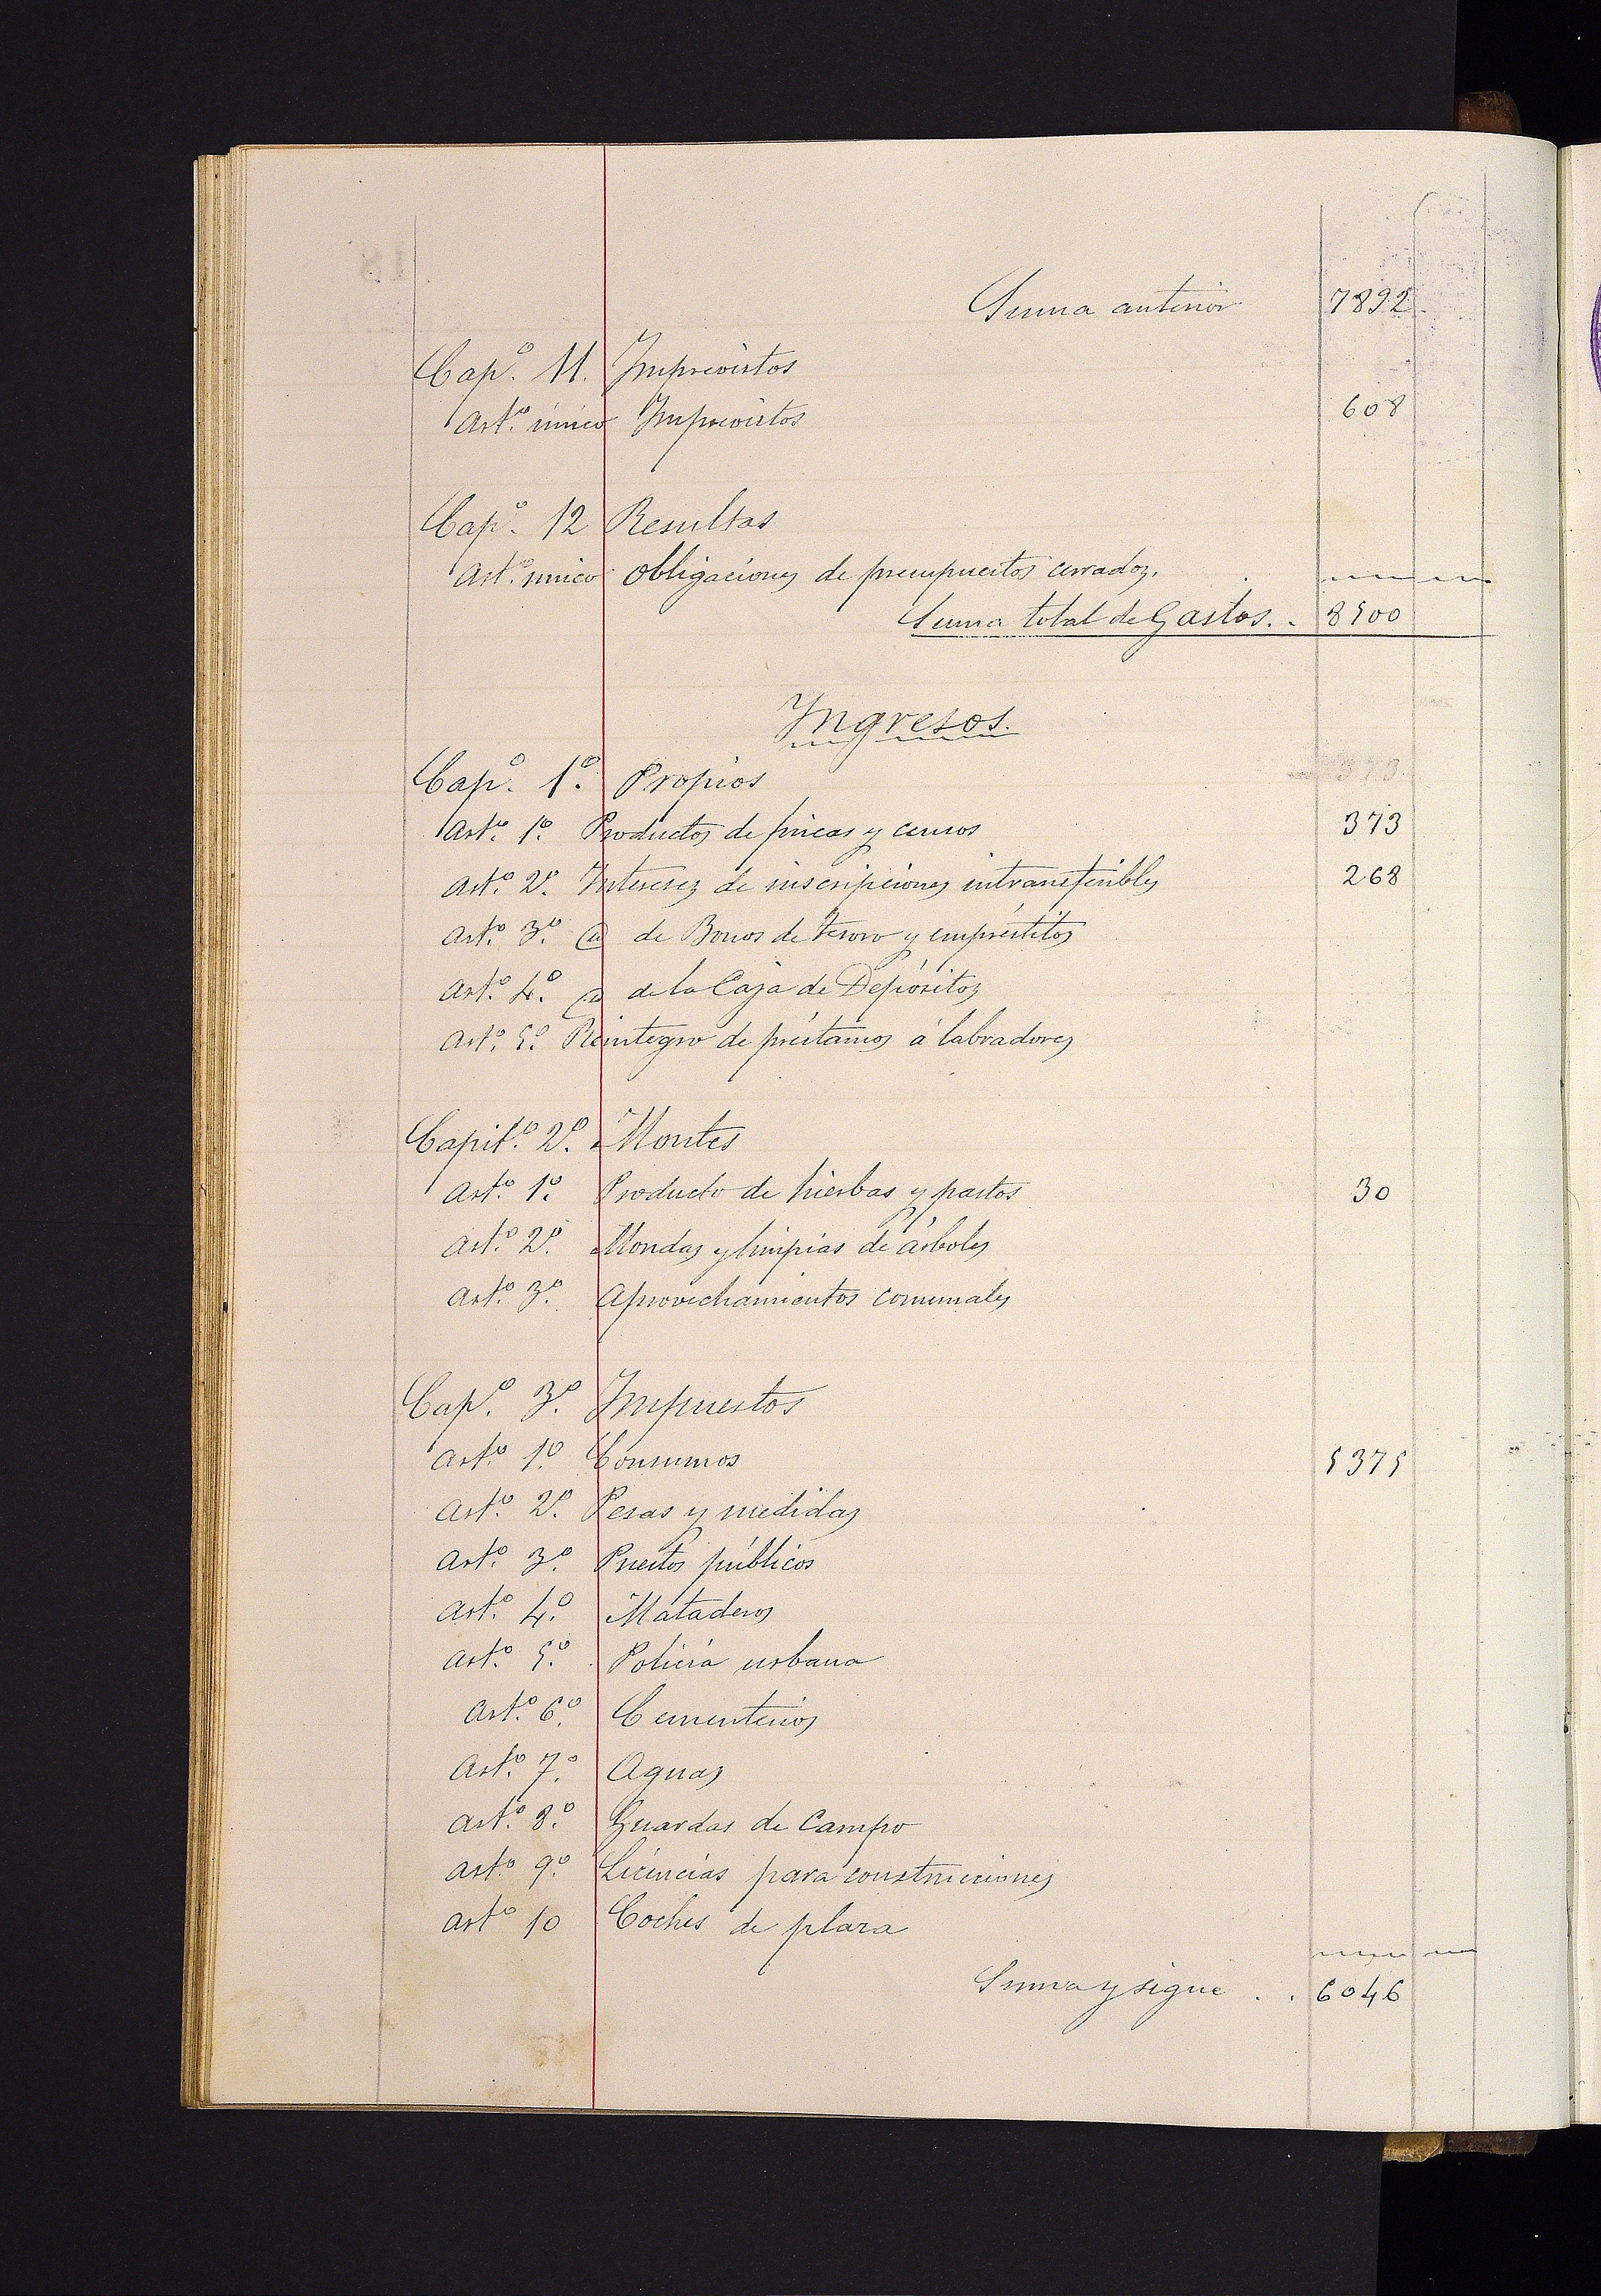 Suma anterior 7892
Cap.º 11. Imprevistos
Art.º único Imprevistos 608
Cap.º 12 Resultas
Art.º único Obligaciones de presupuestos cerrados.
Suma total de Gastos.. 8500
Ingresos.
Cap.º 1.º Propios
Art.º 1.º Productos de fincas y censos 373
Art.º 2.º Intereses de inscripciones intransferibles 268
Art.º 3.º de Bonos de Tesoro y empréstitos
Art.º 4.º de la Caja de Depósitos
Art.º 5.º Reintegro de préstamos á labradores
Capit.º 2.º Montes
Art.º 1.º Producto de hierbas y pastos 30
Art.º 2.º Mondas y limpias de árboles
Art.º 3.º Aprovechamientos comunales
Cap.º 3.º Impuestos
Art.º 1.º Consumos 5375
Art.º 2.º Pesas y medidas
Art.º 3.º Puestos públicos
Art.º 4.º Mataderos
Art.º 5.º Policía urbana
Art.º 6.º Cementerios
Art.º 7.º Aguas
Art.º 8.º Guardas de Campo
Artº 9.º Licencias para construcciones
Artº 10 Coches de plaza
Suma y sigue .. 6046